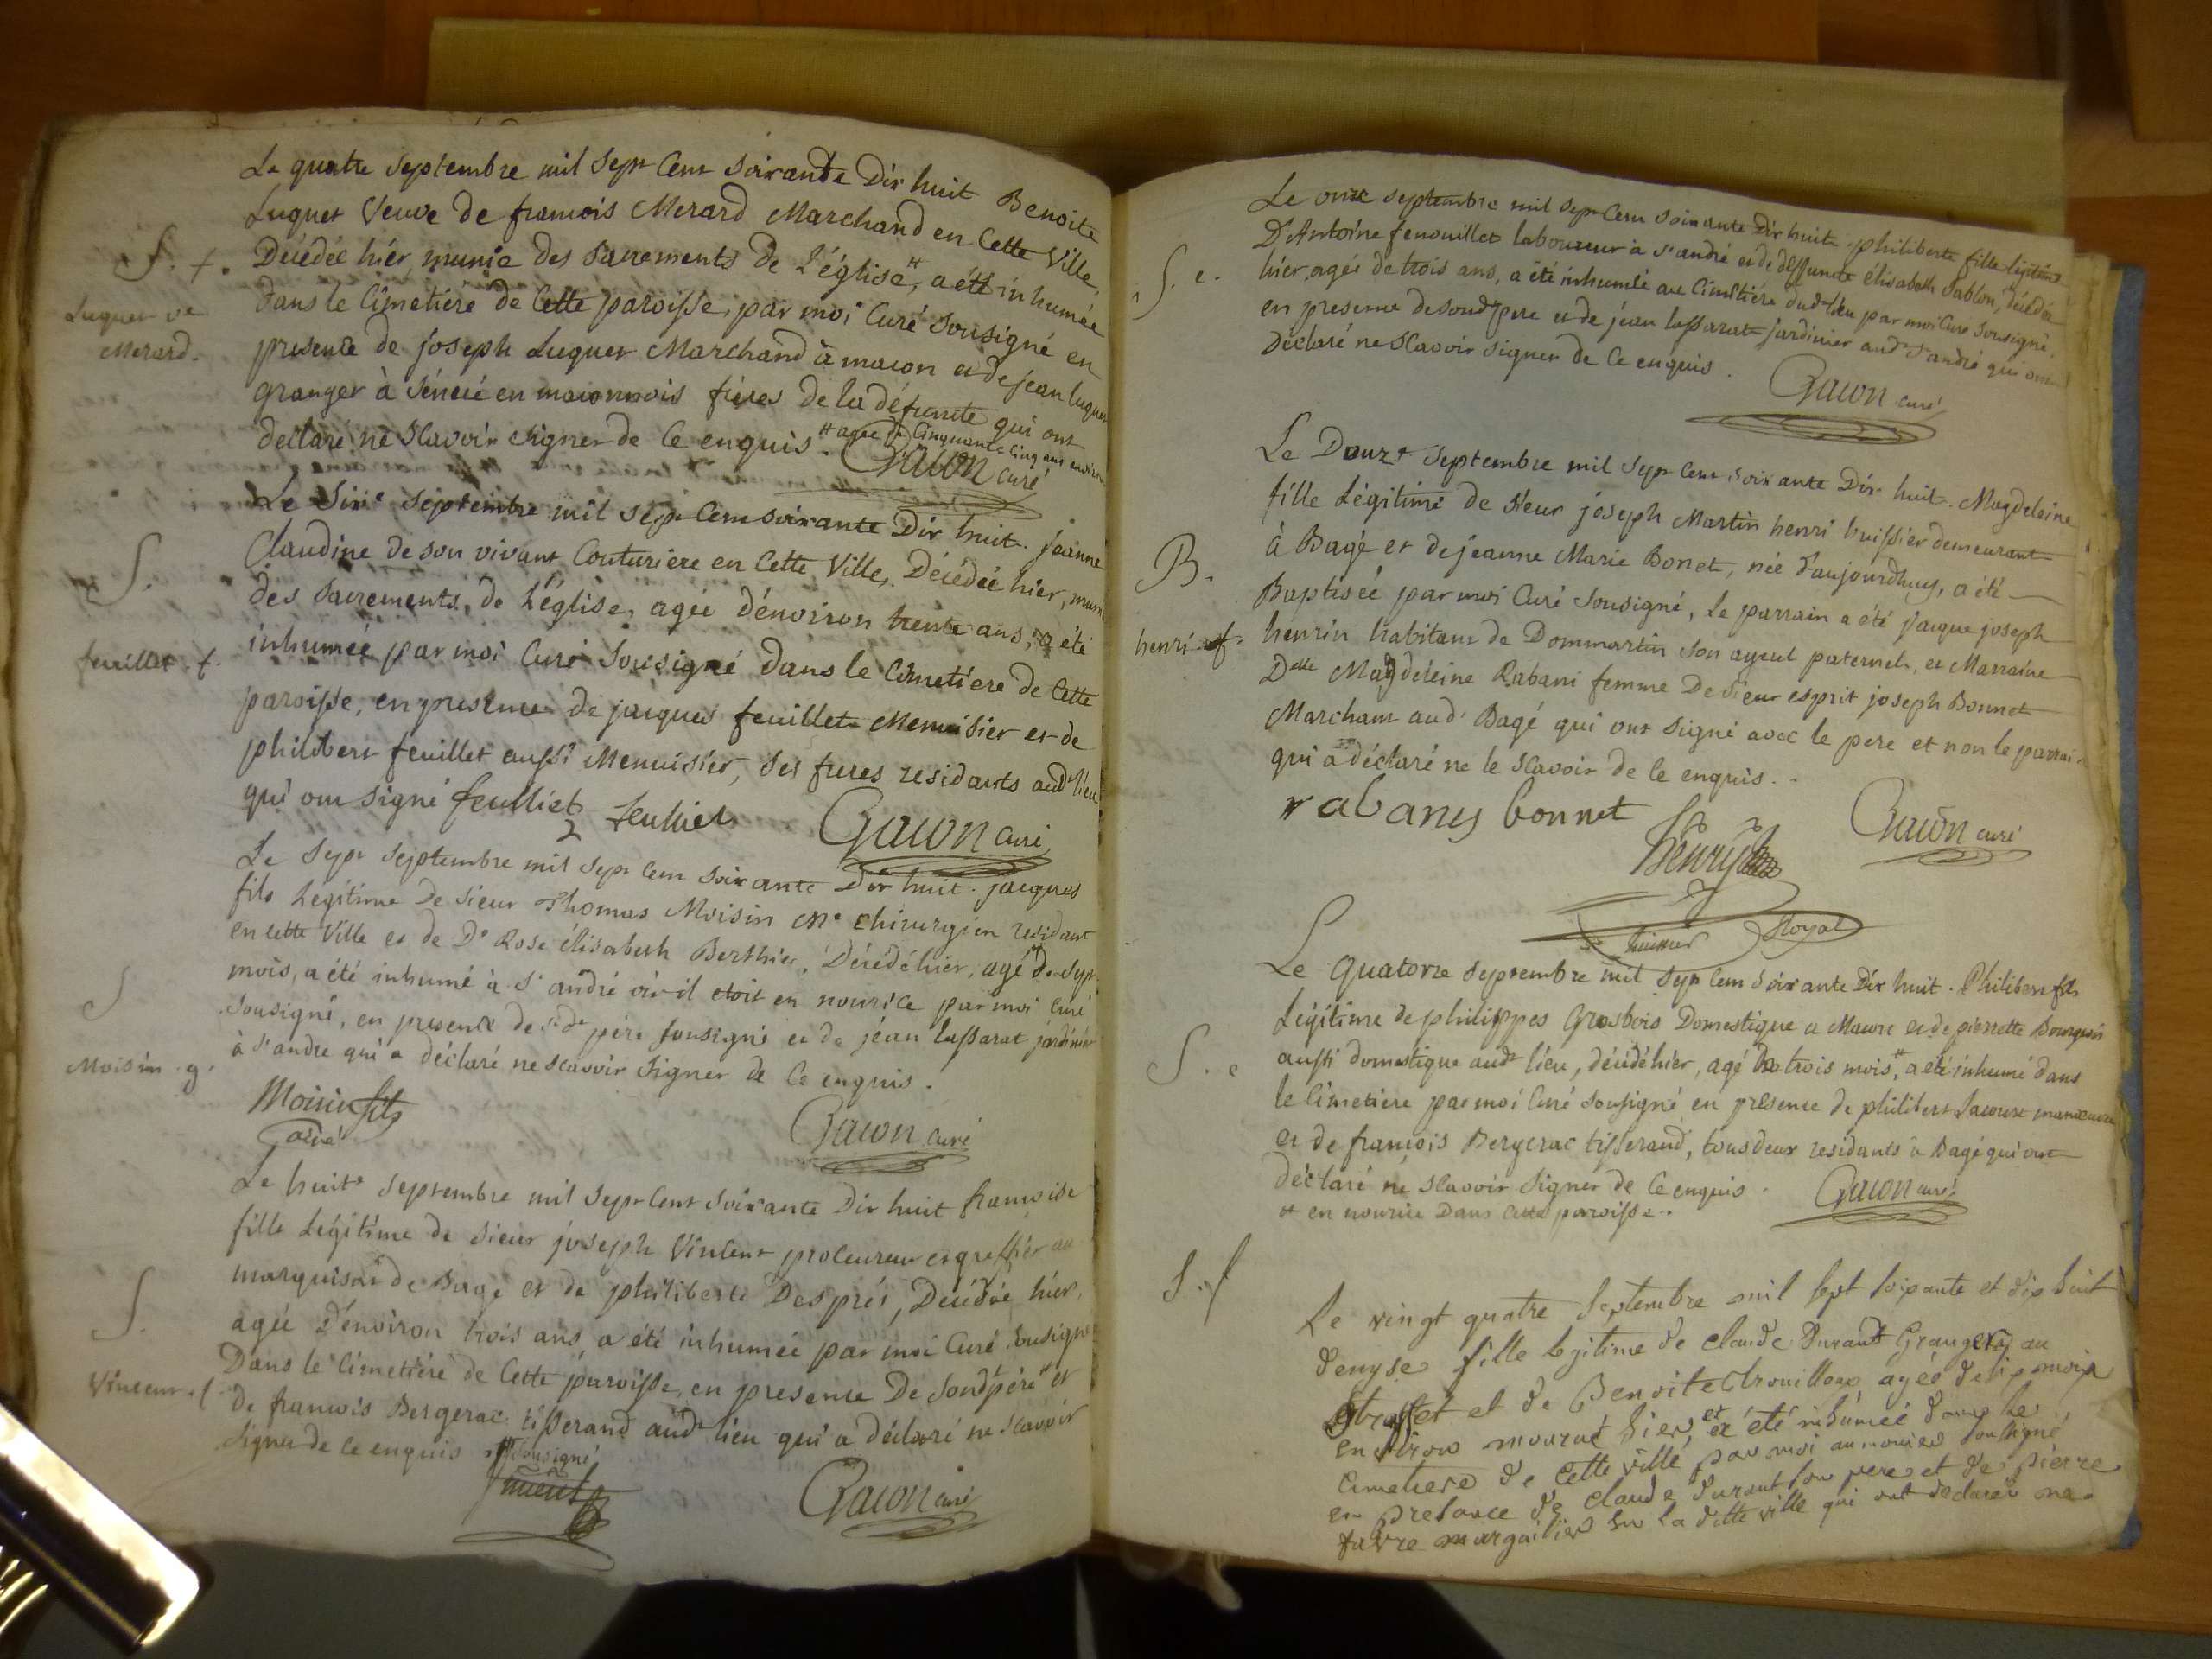 Le quatre septembre mil sept cent soixante dix huit Benoite
Luquet veuve de francois Merard Marchand en cette ville,
S. f.
Décédée hier, munie des sacrements de l'église # a été inhumée
Luquet ve
Merard.
dans le Cimetiére de cette paroisse, par moi Curé sousigné en
presence de joseph Luquet Marchand à macon et de jean luquet
granger à Sénecé en maconnois fréres de la défunte qui ont
declaré ne scavoir signer de ce enquis. # agée de Cinquante Cinq ans environ
Gacon curé
Le Sixe septembre mil sept cent soixante Dix huit. jeanne
S.
Claudine de son vivant Couturiere en cette ville, Décédée hier, munie
des sacrements de l'église, agée d'environ trente ans, a été
feuillet. f.
inhumée par moi Curé sousigné dans le Cimetiere de cette
paroisse, en presence de jacques feuillet Menuisier et de
philibert feuillet aussi Menuisier, ses freres residants aud. lieu
qui ont signé feulliet feulliet
Gacon curé
Le sept septembre mil sept cent soixante Dix huit. jacques
fils Légitime de sieur Thomas Moisin Me chirurgien residant
en cette ville et de De Rose élisabeth Berthier, Décédé hier, agé de sept
S
mois, a été inhumé à st andré où il etoit en nourice par moi Curé
sousigné, en presence de sd père sousigné et de jean lassarat jardinier
Moisin. g.
à st andre qui a déclaré ne scavoir signer de ce enquis.
Moisin fils
Gacon curé
Le huite septembre mil sept cent soixante Dix huit francoise
fille Légitime de sieur joseph Vincent procureur et greffier au
marquisat de Bagé et de philiberte Després, Décédée hier,
S.
agée d'environ trois ans, a été inhumée par moi Curé sousigné
Dans le Cimetiére de cette paroisse, en presence de sond. père # et
Vincent. f
de francois Bergerac tisserand aud. lieu qui a déclaré ne scavoir
signer de ce enquis # sousigné
Vincent
Gacon curé
Le onze septembre mil sept cent soixante Dix huit. philiberte fille légitime
D'Antoine fenouillet laboureur à st andré et de deffunte élisabeth Sablon, décédée
S. e.
hier, agée de trois ans, a été inhumée au Cimetiére dud. lieu par moi Curé sousigné,
en presence de sond. pere et de jean lassarat jardinier aud. st andré qui ont
Déclaré ne scavoir signer de ce enquis.
Gacon curé
Le Douze septembre mil sept cent soixante Dix huit. Magdeleine
fille Légitime de sieur joseph Martin henri huissier demeurant
B.
à Bagé et de jeanne Marie Bonet, née d'aujourdhuy, a été
Baptisée par moi Curé sousigné, le parrain a été jacque joseph
henri f.
henrin habitant de Dommartin son ayeul paternel, et Marraine
Delle Magdeleine Rabani femme De sieur esprit joseph Bonnet
Marchant aud. Bagé qui ont signé avec le pere et non le parrai
qui a déclaré ne le scavoir de ce enquis.
rabany bonnet
henry
Gacon curé
huissier Royal
Le quatorze septembre mil sept cent soixante Dix huit. Philibert fils
Légitime de philippes Grosbois Domestique a Macon et de pierrette Bourgeois
S. e
aussi domestique aud. lieu, décédé hier, agé de trois mois, # a été inhumé dans
le Cimetiere par moi Curé sousigné en presence de philibert manoeuvre
et de francois Bergerac tisserand, tous deux residants à Bagé qui ont
déclaré ne scavoir signer de ce enquis.
Gacon curé
# en nourice dans cette paroisse.
S. f
Le vingt quatre septembre mil sept soixante et dix huit
denyse fille légitime de claude Durand Granger au
et de Benoite trouilloux agée de six mois
environ mourut hier, et a été inhumée dans le
cimetiere de cette ville par moi aumonier soussigné
en presance de claude durant son pere et de pierre
favre margaillier en la ditte ville qui ont declarer ne